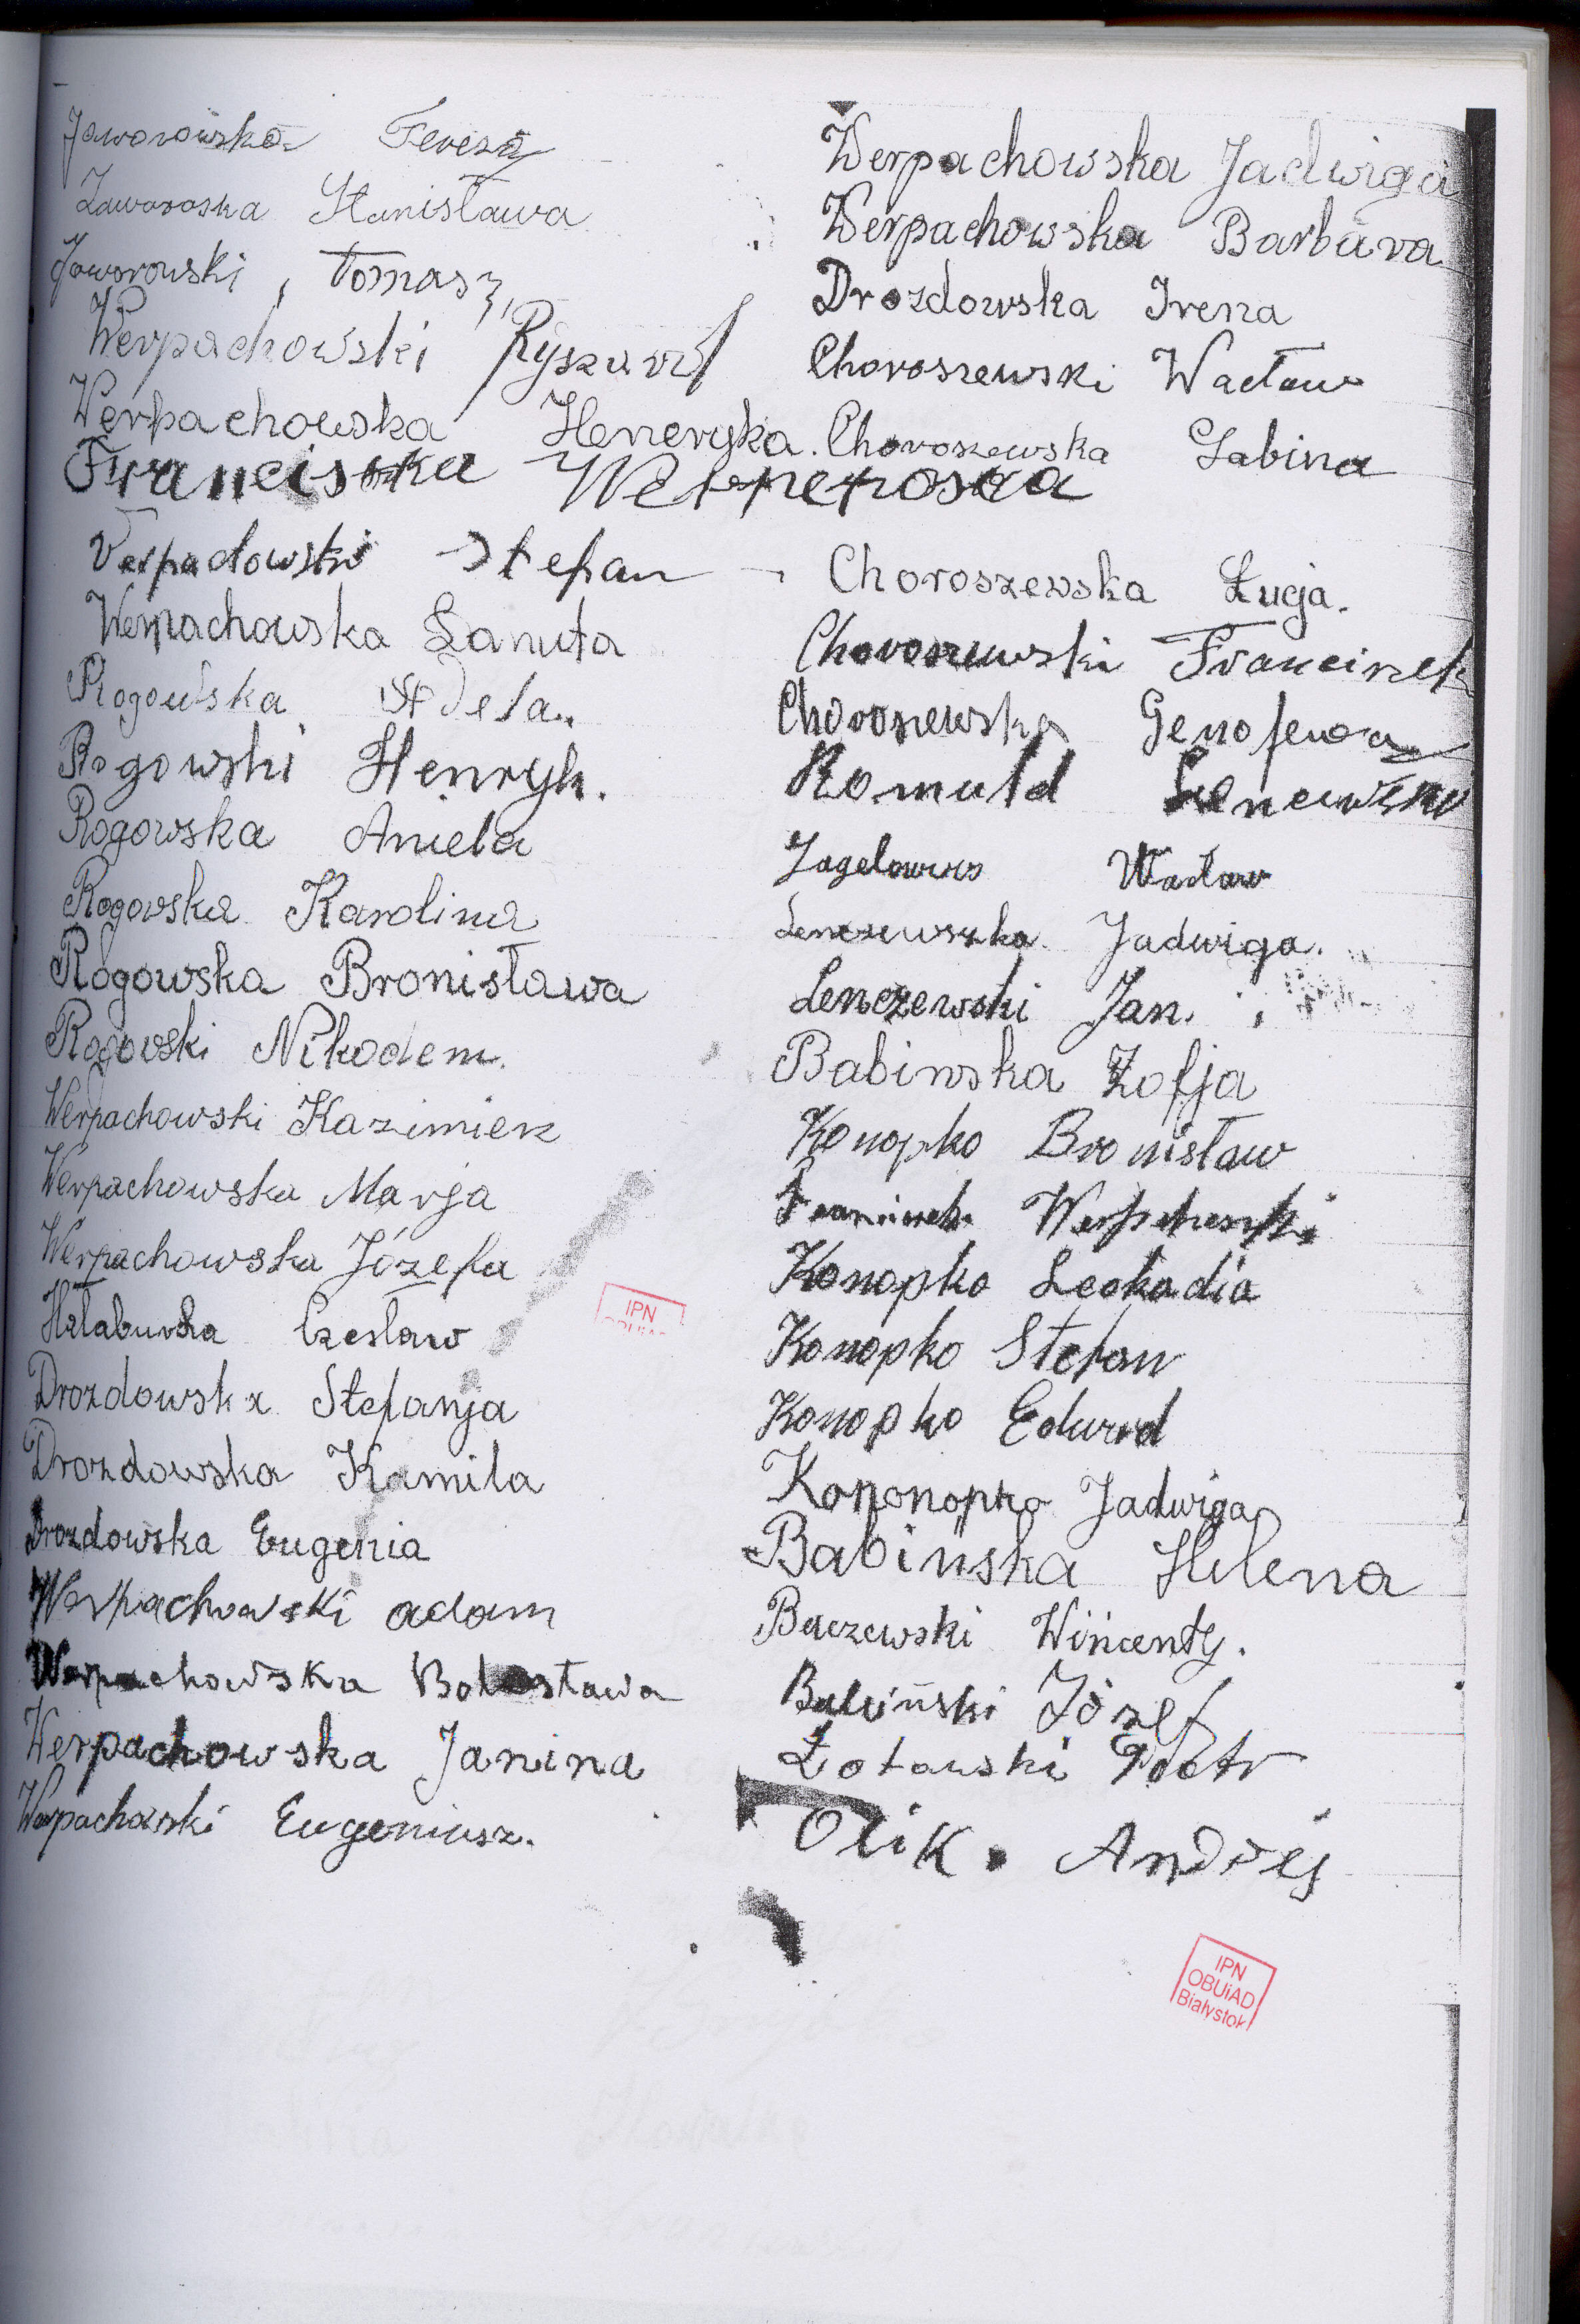 Jaworowska Teresa
Zaworoska Stanisława
Jaworowski, Tomasz
Werpachowski Ryszard
Werpachowska Heneryka.
Franciszka
Verpadowski Stefan
Werpachowska Danuta
Rogowska Adela
Rogowski Henryk.
Rogowska Aniela
Rogowska Karolina
Rogowska Bronisława
Rogowski Nikodem.
Werpachowski Kazimierz
Werpachowska Marja
Werpachowska Józefa
Czesław
Drozdowska Stefanja
Drozdowska Kamila
Drozdowska Eugenia
Werpachowski adam
Werpachowska Bolesława
Werpachowska Janina
Werpachowski Eugeniusz.
Werpachowska Jadwiga
Werpachowska Barbara
Drozdowska Irena
Choroszewski Wacław
Choroszewska Sabina
Choroszewska Łucja.
Choroszewski Franciszek
Choroszewska Genofewa
Romuld
Wacław
Jadwiga.
Lenczewski Jan.
Babinska Zofja
Konopko Bronisław
Konopko Leokadia
Konopko Stefan
Konopko Edward
Kononopko Jadwiga
Babinska Helena
Baczewski Wincenty.
Babiński Józef
Piotr
Olik. Andrej
IPN
IPN
OBUiAD
Białystok